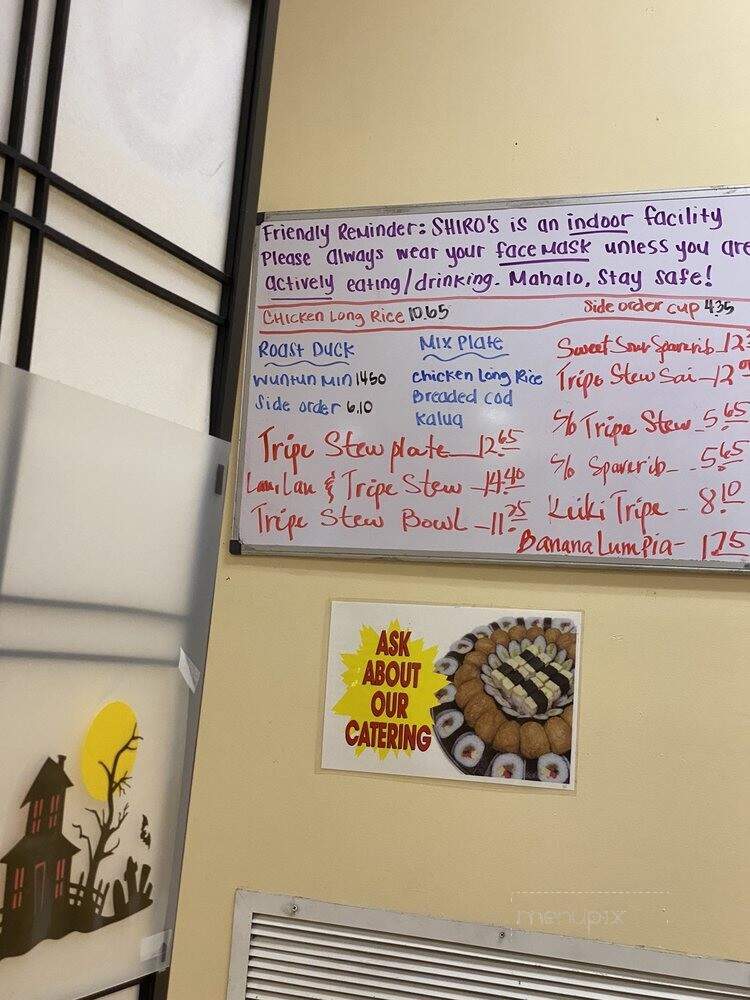 Friendly Reminder: SHIRO's is an indoor facility
Please always wear your face mask unless you are
actively eating/drinking. Mahalo, Stay safe!
Chicken Long Rice 10.65
Side order cup 4.35
Roast Duck
Wuntun Min 14.60
Side order 6.10
Mix Plate
Chicken Long Rice
Breaded Cod
Kalua
Sweet Sour Sparerib 12
Tripe Stew Sai - 12
S/o Tripe Stew - 5.65
S/o Sparerib - 5.65
Keiki Tripe - 8.10
Banana Lumpia - 1.75
Tripe Stew plate - 12.65
Lau Lau & Tripe Stew - 14.40
Tripe Stew Bowl - 11.25
ASK
ABOUT
OUR
CATERING
menupix